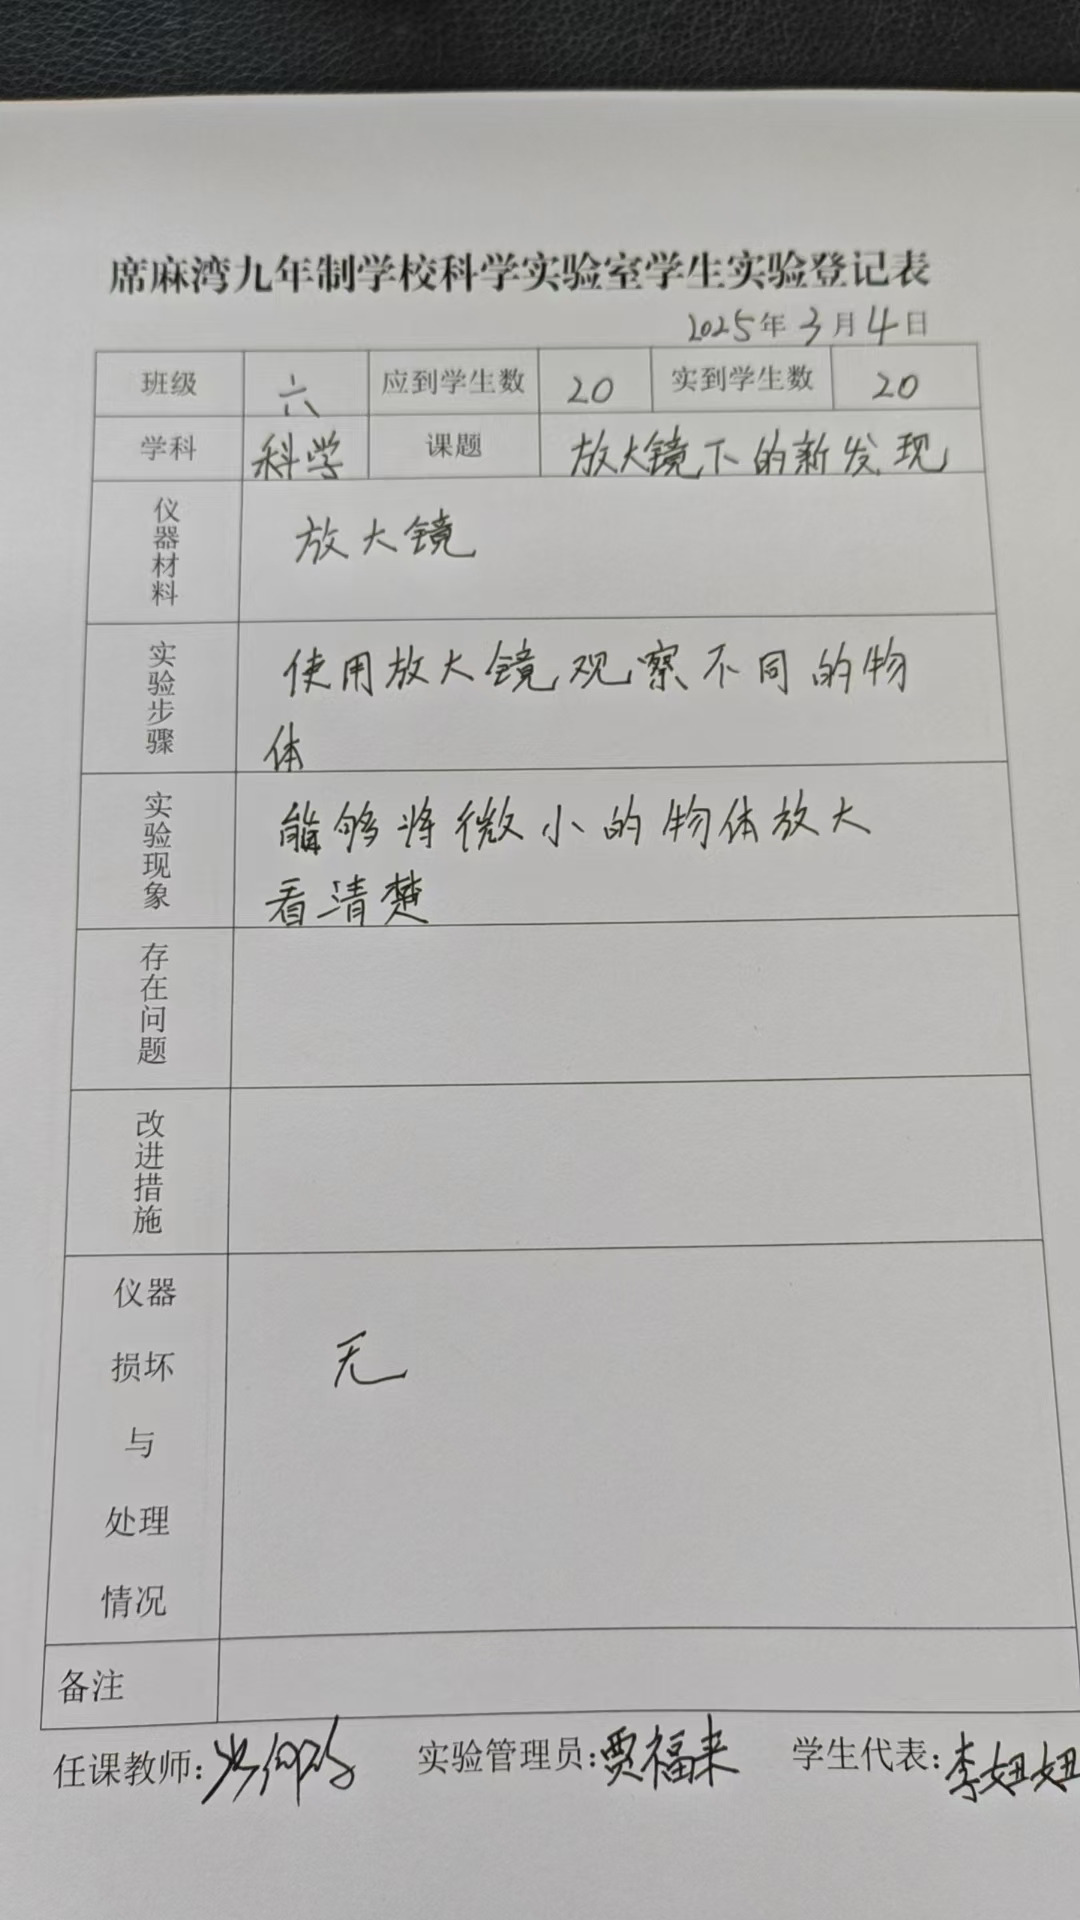 席麻湾九年制学校科学实验室学生实验登记表
2025年3月4日
班级 六 应到学生数 20 实到学生数 20
学科 科学 课题 放大镜下的新发现
仪器材料 放大镜
实验步骤 使用放大镜观察不同的物
体
实验现象 能够将微小的物体放大
看清楚
存在问题
改进措施
仪器
损坏
与
处理
情况
无
备注
任课教师: 实验管理员:贾福来 学生代表:李妞妞